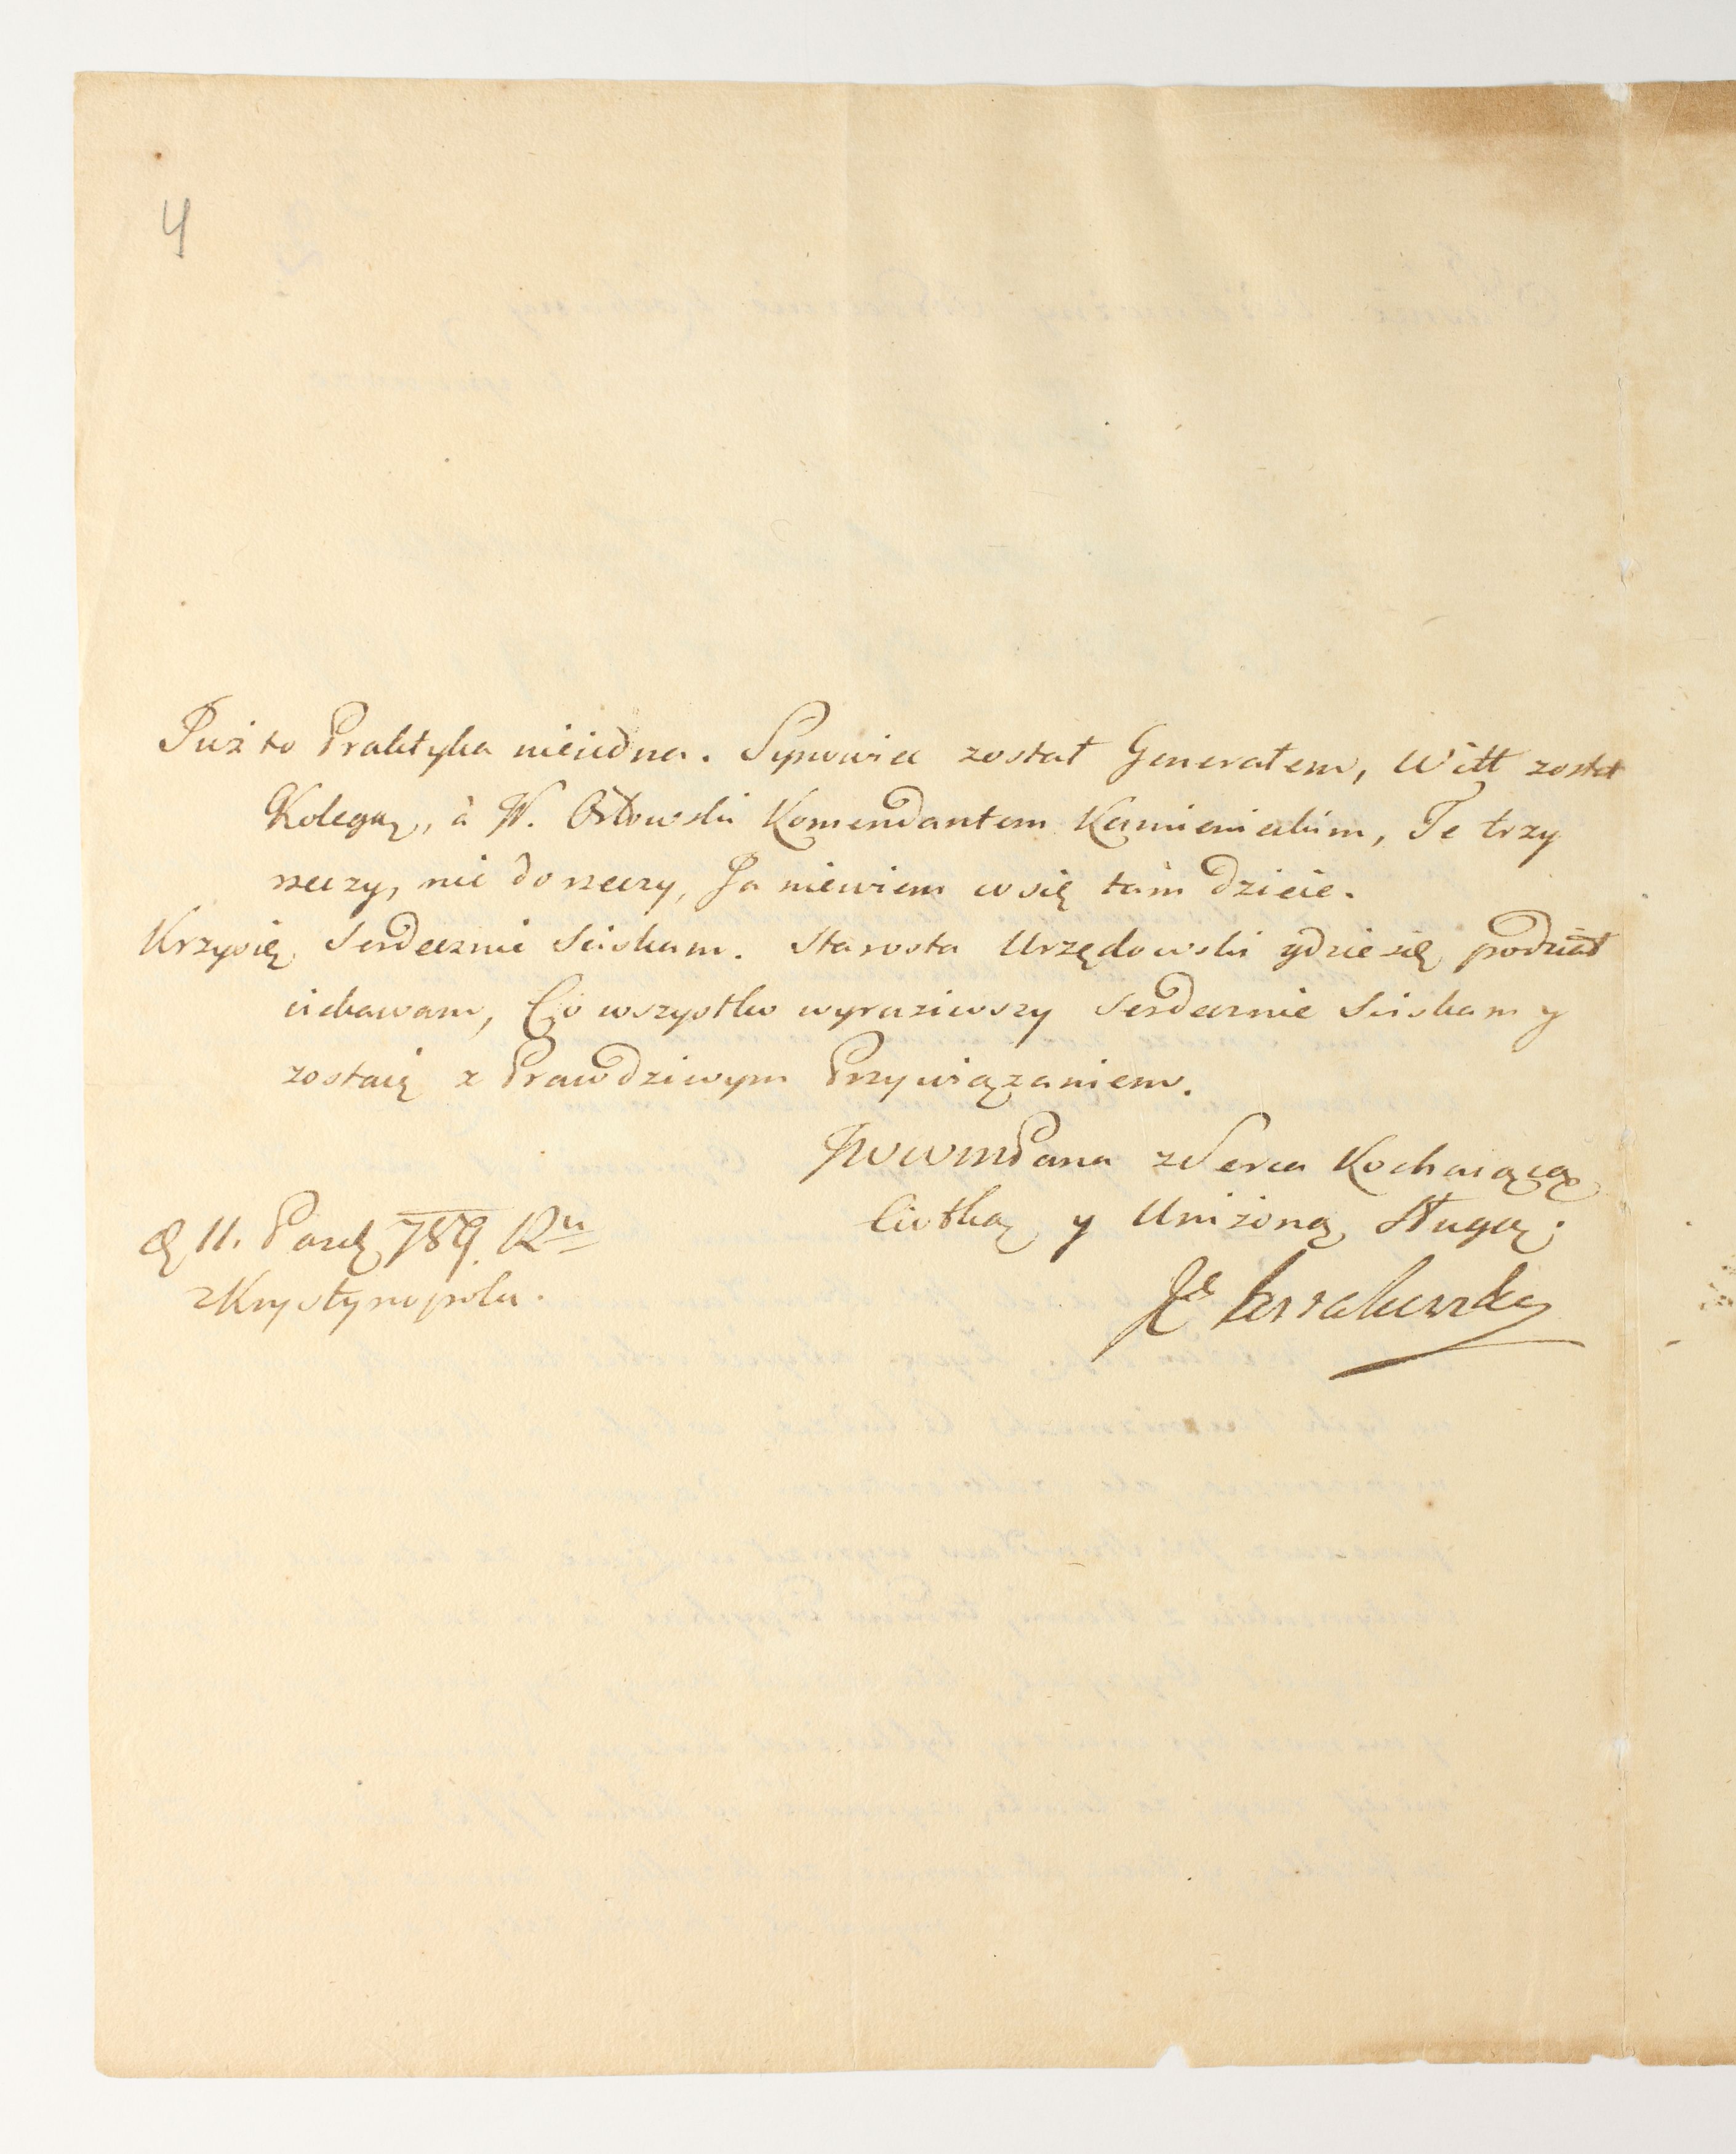 4
Już to Praktyka nieiedna. Synowiec został Generałem, Witt został
Kolegą, à W. Orłowski Komendantem Kamienieckim, Te trzy
rzeczy, nie do rzeczy, Ja niewiem co się tam dzieie.
Krzysię Serdecznie Sciskam. Starosta Urzędowski gdzie się podział
ciekawam, Co wszystko wyraziwszy Serdecznie Sciskam y
zostaię z Prawdziwym Przywiązaniem.
JWWMPana z Serca Kochaiącą
Ciotką y Uniżoną Sługą.
d 11. Paźdź 789. Ru
z Krystynopola.
Kossakowska